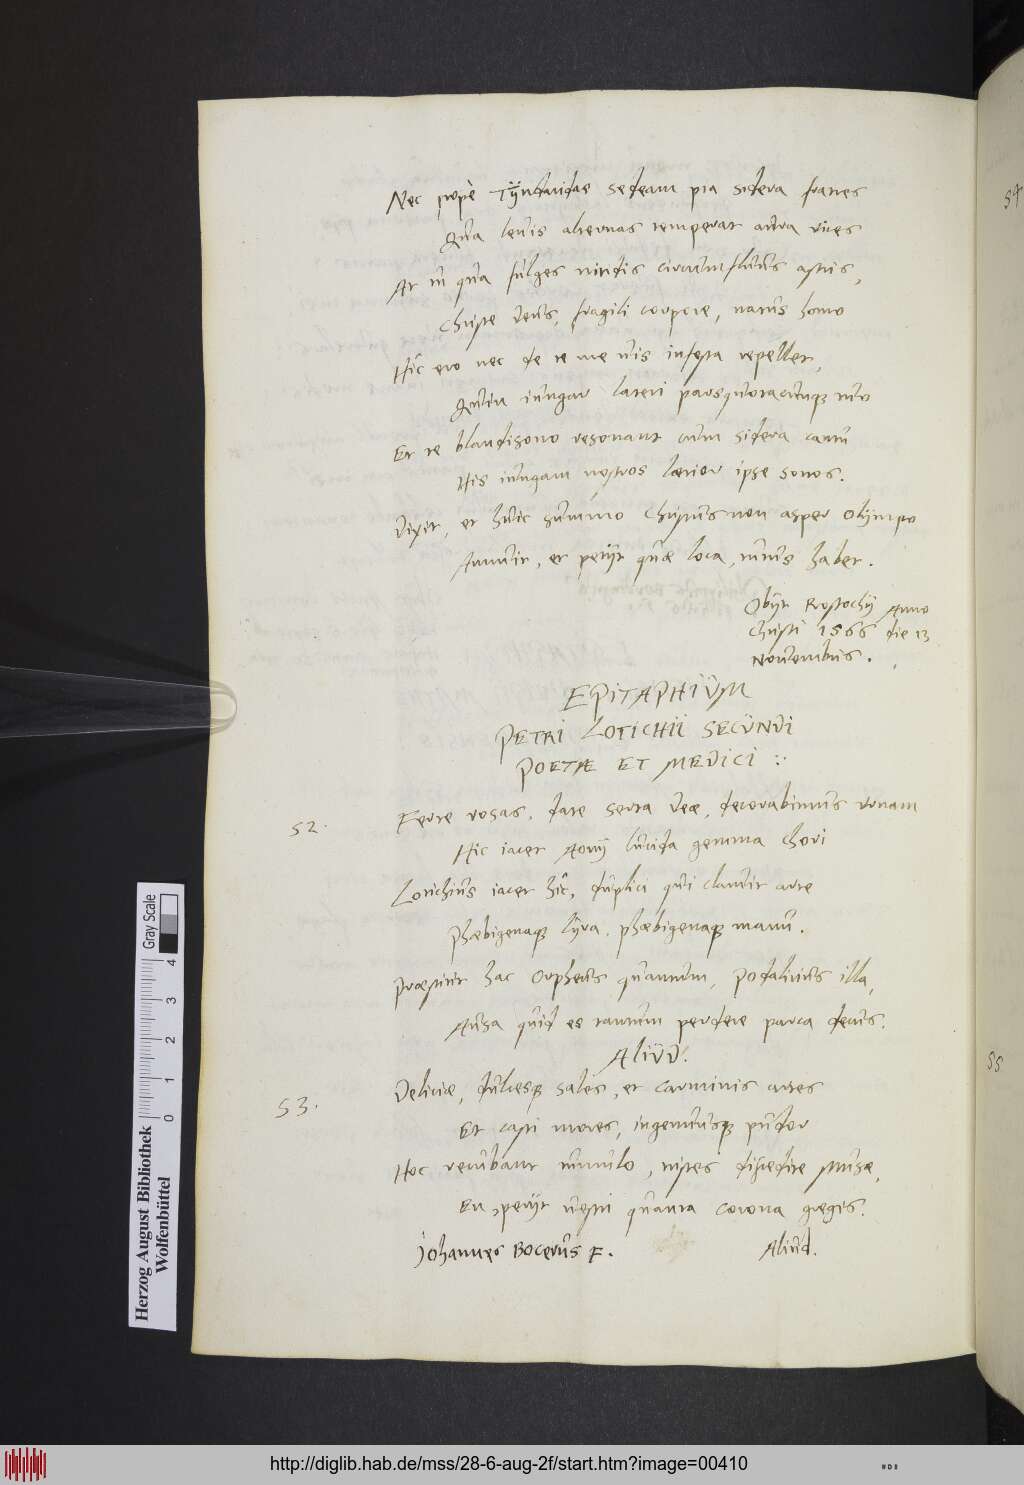 Nec propè Tÿndaridae sedeam pia sidera fratres
Qua levis alternas temperat aura vices
At in qua fulges nitidis circumfluus astris,
Christe Deus, fragili corpore, natus homo
Hîc ero nec de te me vis infesta repellet,
Quin iungar lateri parsquotacunq; tuo
Et te blandisono resonant cum sidera cantu
His iungam nostros laetior ipse sonos.
Dixit, et huic summo Christus non asper Olympo
Annuit, et petijt quae loca, munus habet.
Obijt Rostochij Anno
Christi 1566 die 13
Novembris.
EPITAPHIUM
PETRI LOTICHII SECUNDI
POETAE ET MEDICI :
52.
Ferte rosas, date serta Deae, decorabimus urnam
Hic iacet Aonij lucida gemma chori
Lotichius iacet hîc, duplici qui claruit arte
Phaebigenaq; lÿra, phaebigenaq; manu.
Praestitit hac Orpheus quantum, Podalirius illa,
Ausa quid es tantum perdere parca decus.
ALIUD.
53.
Deliciae, dulcesq; sales, et carminis artes
Et casti mores, ingenuusq; pudor
Hoc recubant tumulo, tristes discedite Musae,
En, perijt vestri quanta corona gregis.
Johannes Bocerus F.
Aliud.
54
55
Herzog August Bibliothek
Wolfenbüttel
Gray Scale
0 1 2 3 4
http://diglib.hab.de/mss/28-6-aug-2f/start.htm?image=00410